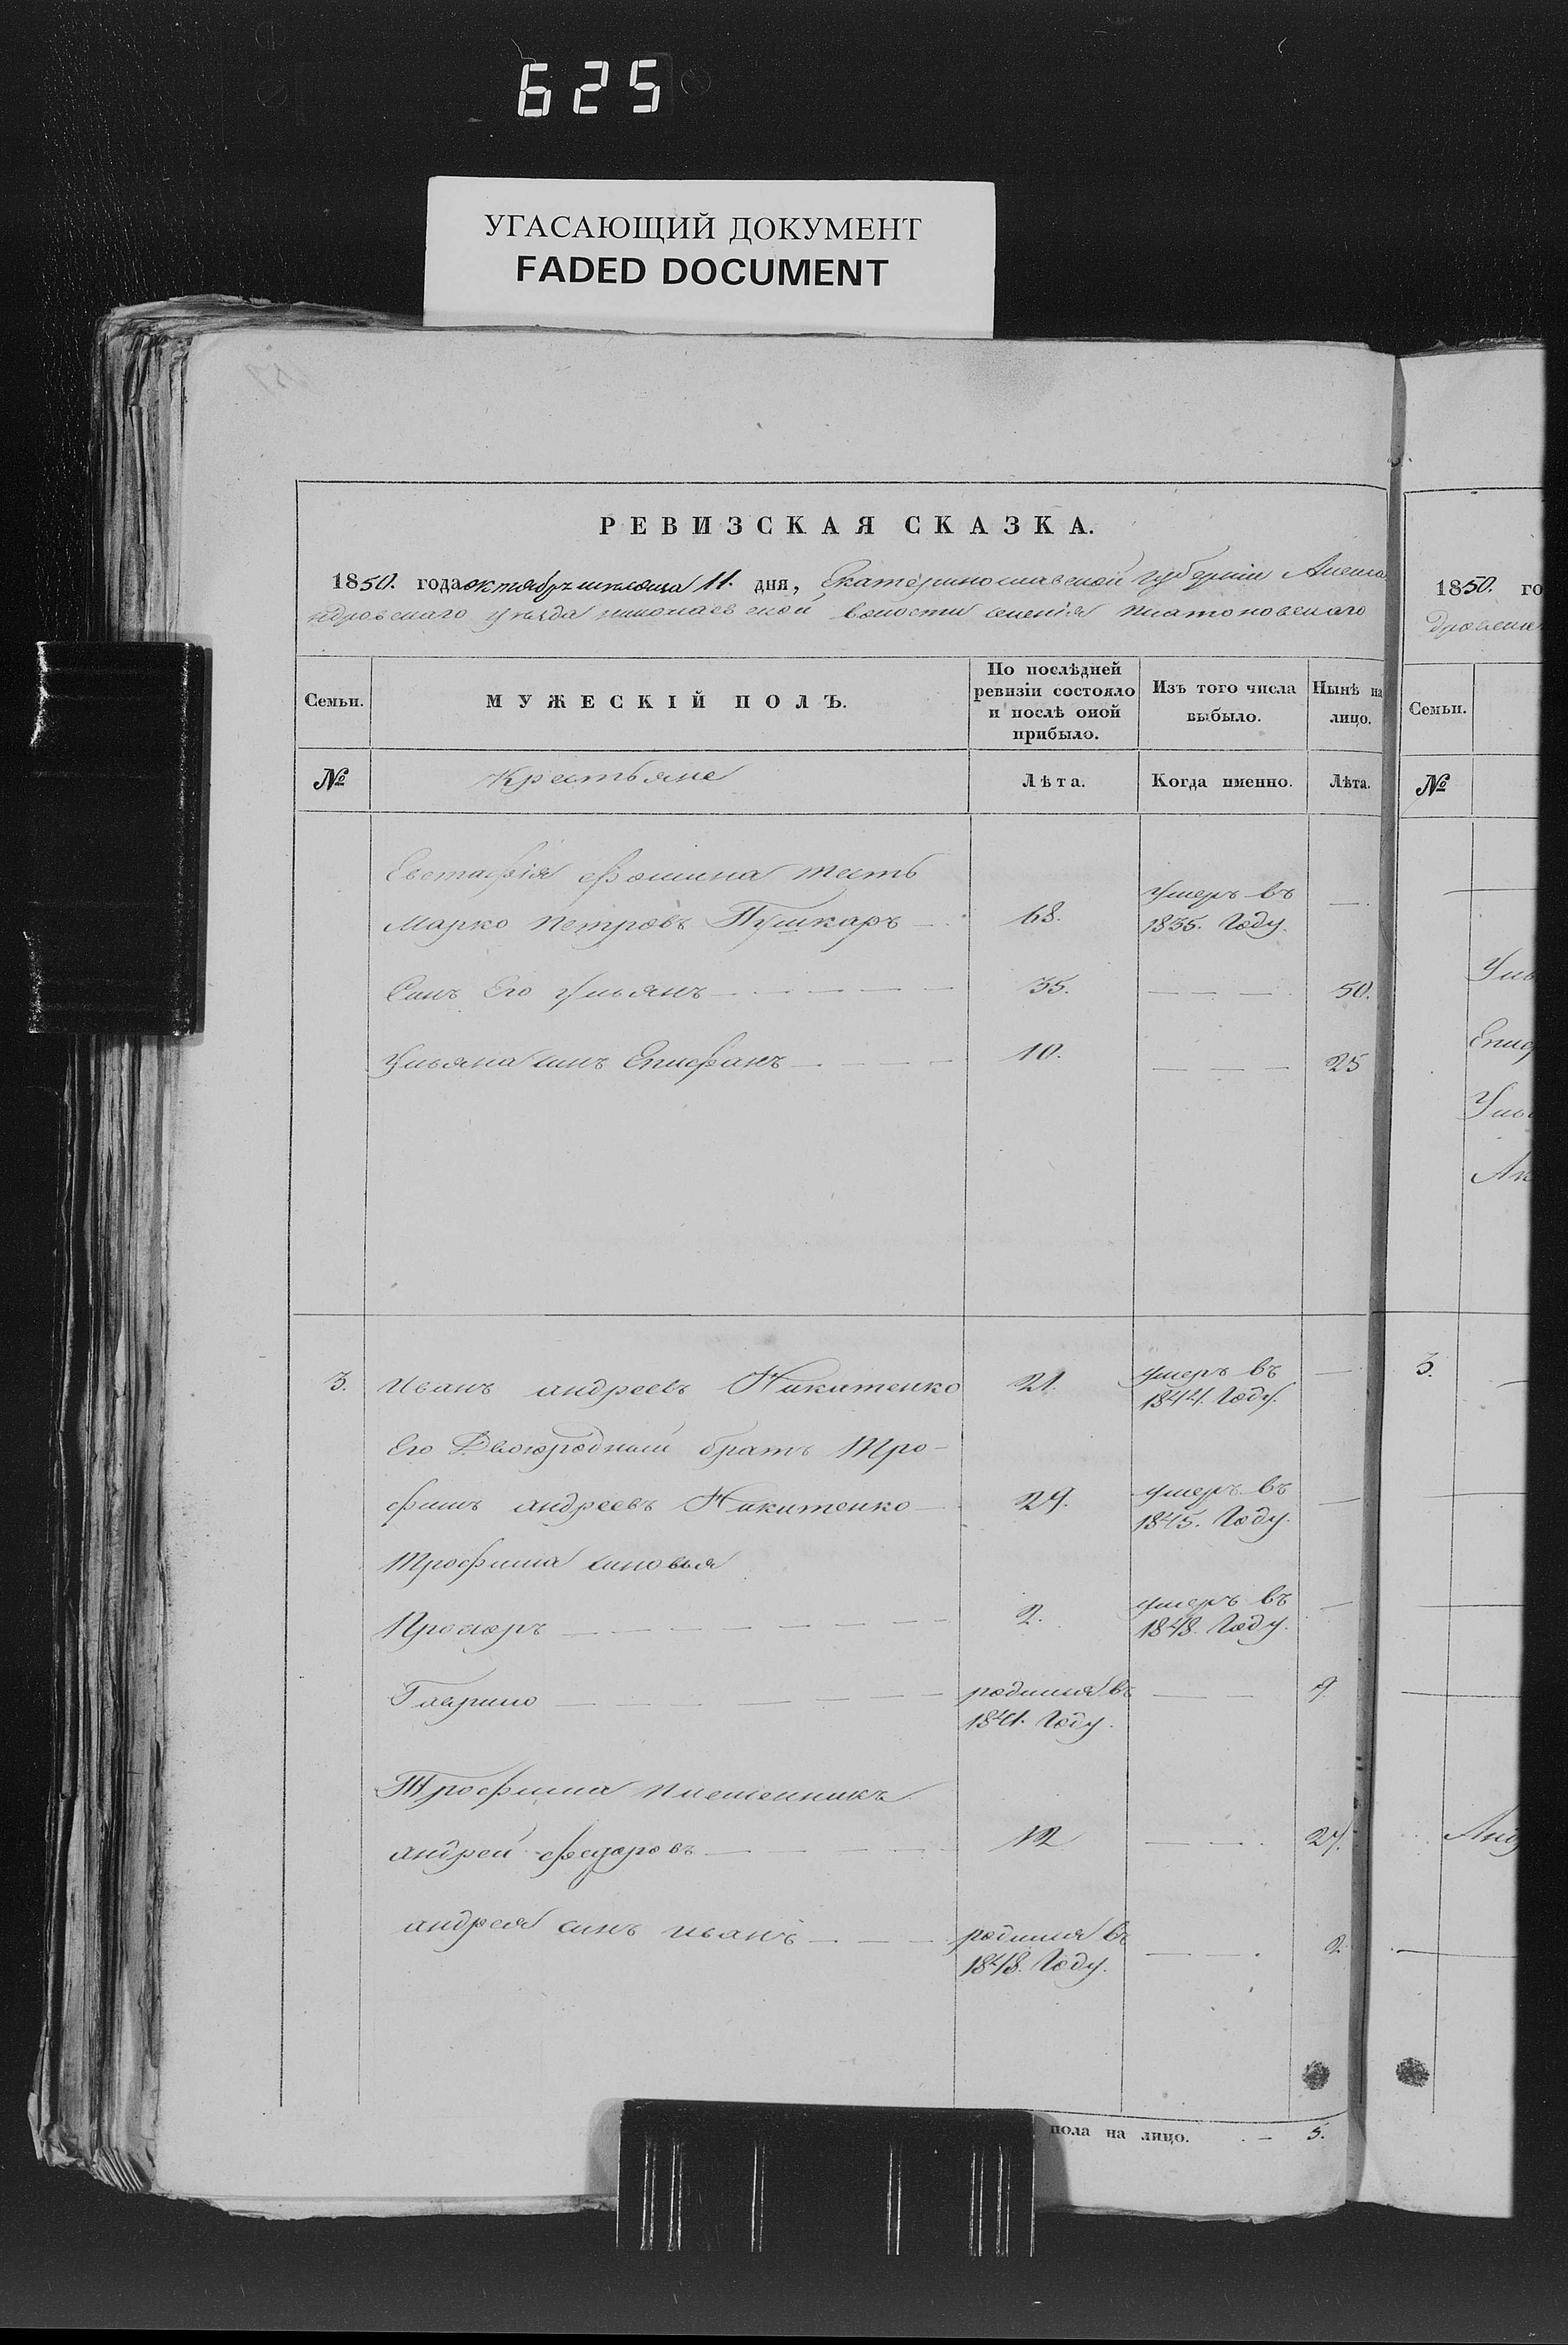 625
УГАСАЮЩИЙ ДОКУМЕНТ
FADED DOCUMENT
РЕВИЗСКАЯ СКАЗКА.
1850. года октябрь месяца 11. дня, Екатеринославской губернии Алекса
ндровского уезда николаевской волости селения платоновского
Семьи.
МУЖЕСКІЙ ПОЛЪ.
По послѣдней ревизіи состояло и послѣ оной прибыло.
Изъ того числа выбыло.
Нынѣ на лицо.
№ Крестьяне Лѣта. Когда именно. Лѣта.
Евстафія фомина тесть
Марко петровъ Пушкаръ — 68. умеръ въ 1835. Году. —
Синъ Его ульянъ — 35. — 50.
ульяна синъ Епифанъ — 10. — 25
3. Иванъ андреевъ Никитенко 21. умеръ въ 1844. Году. —
Его Двоюродный братъ Тро-
фимъ андреевъ Никитенко — 29. умеръ въ 1845. Году. —
Трофима синовья
Прохоръ — 2. умеръ въ 1848. Году. —
Гаврило — родился въ 1841. Году. — 9
Трофима племенникъ
андрей федоровъ — 12 — 27.
андрея синъ иванъ — родился въ 1848. Году. — 2.
пола на лицо. — 5.
1850. го
Семьи.
№
Уль
Епиф
Уль
Ак
3.
Анд